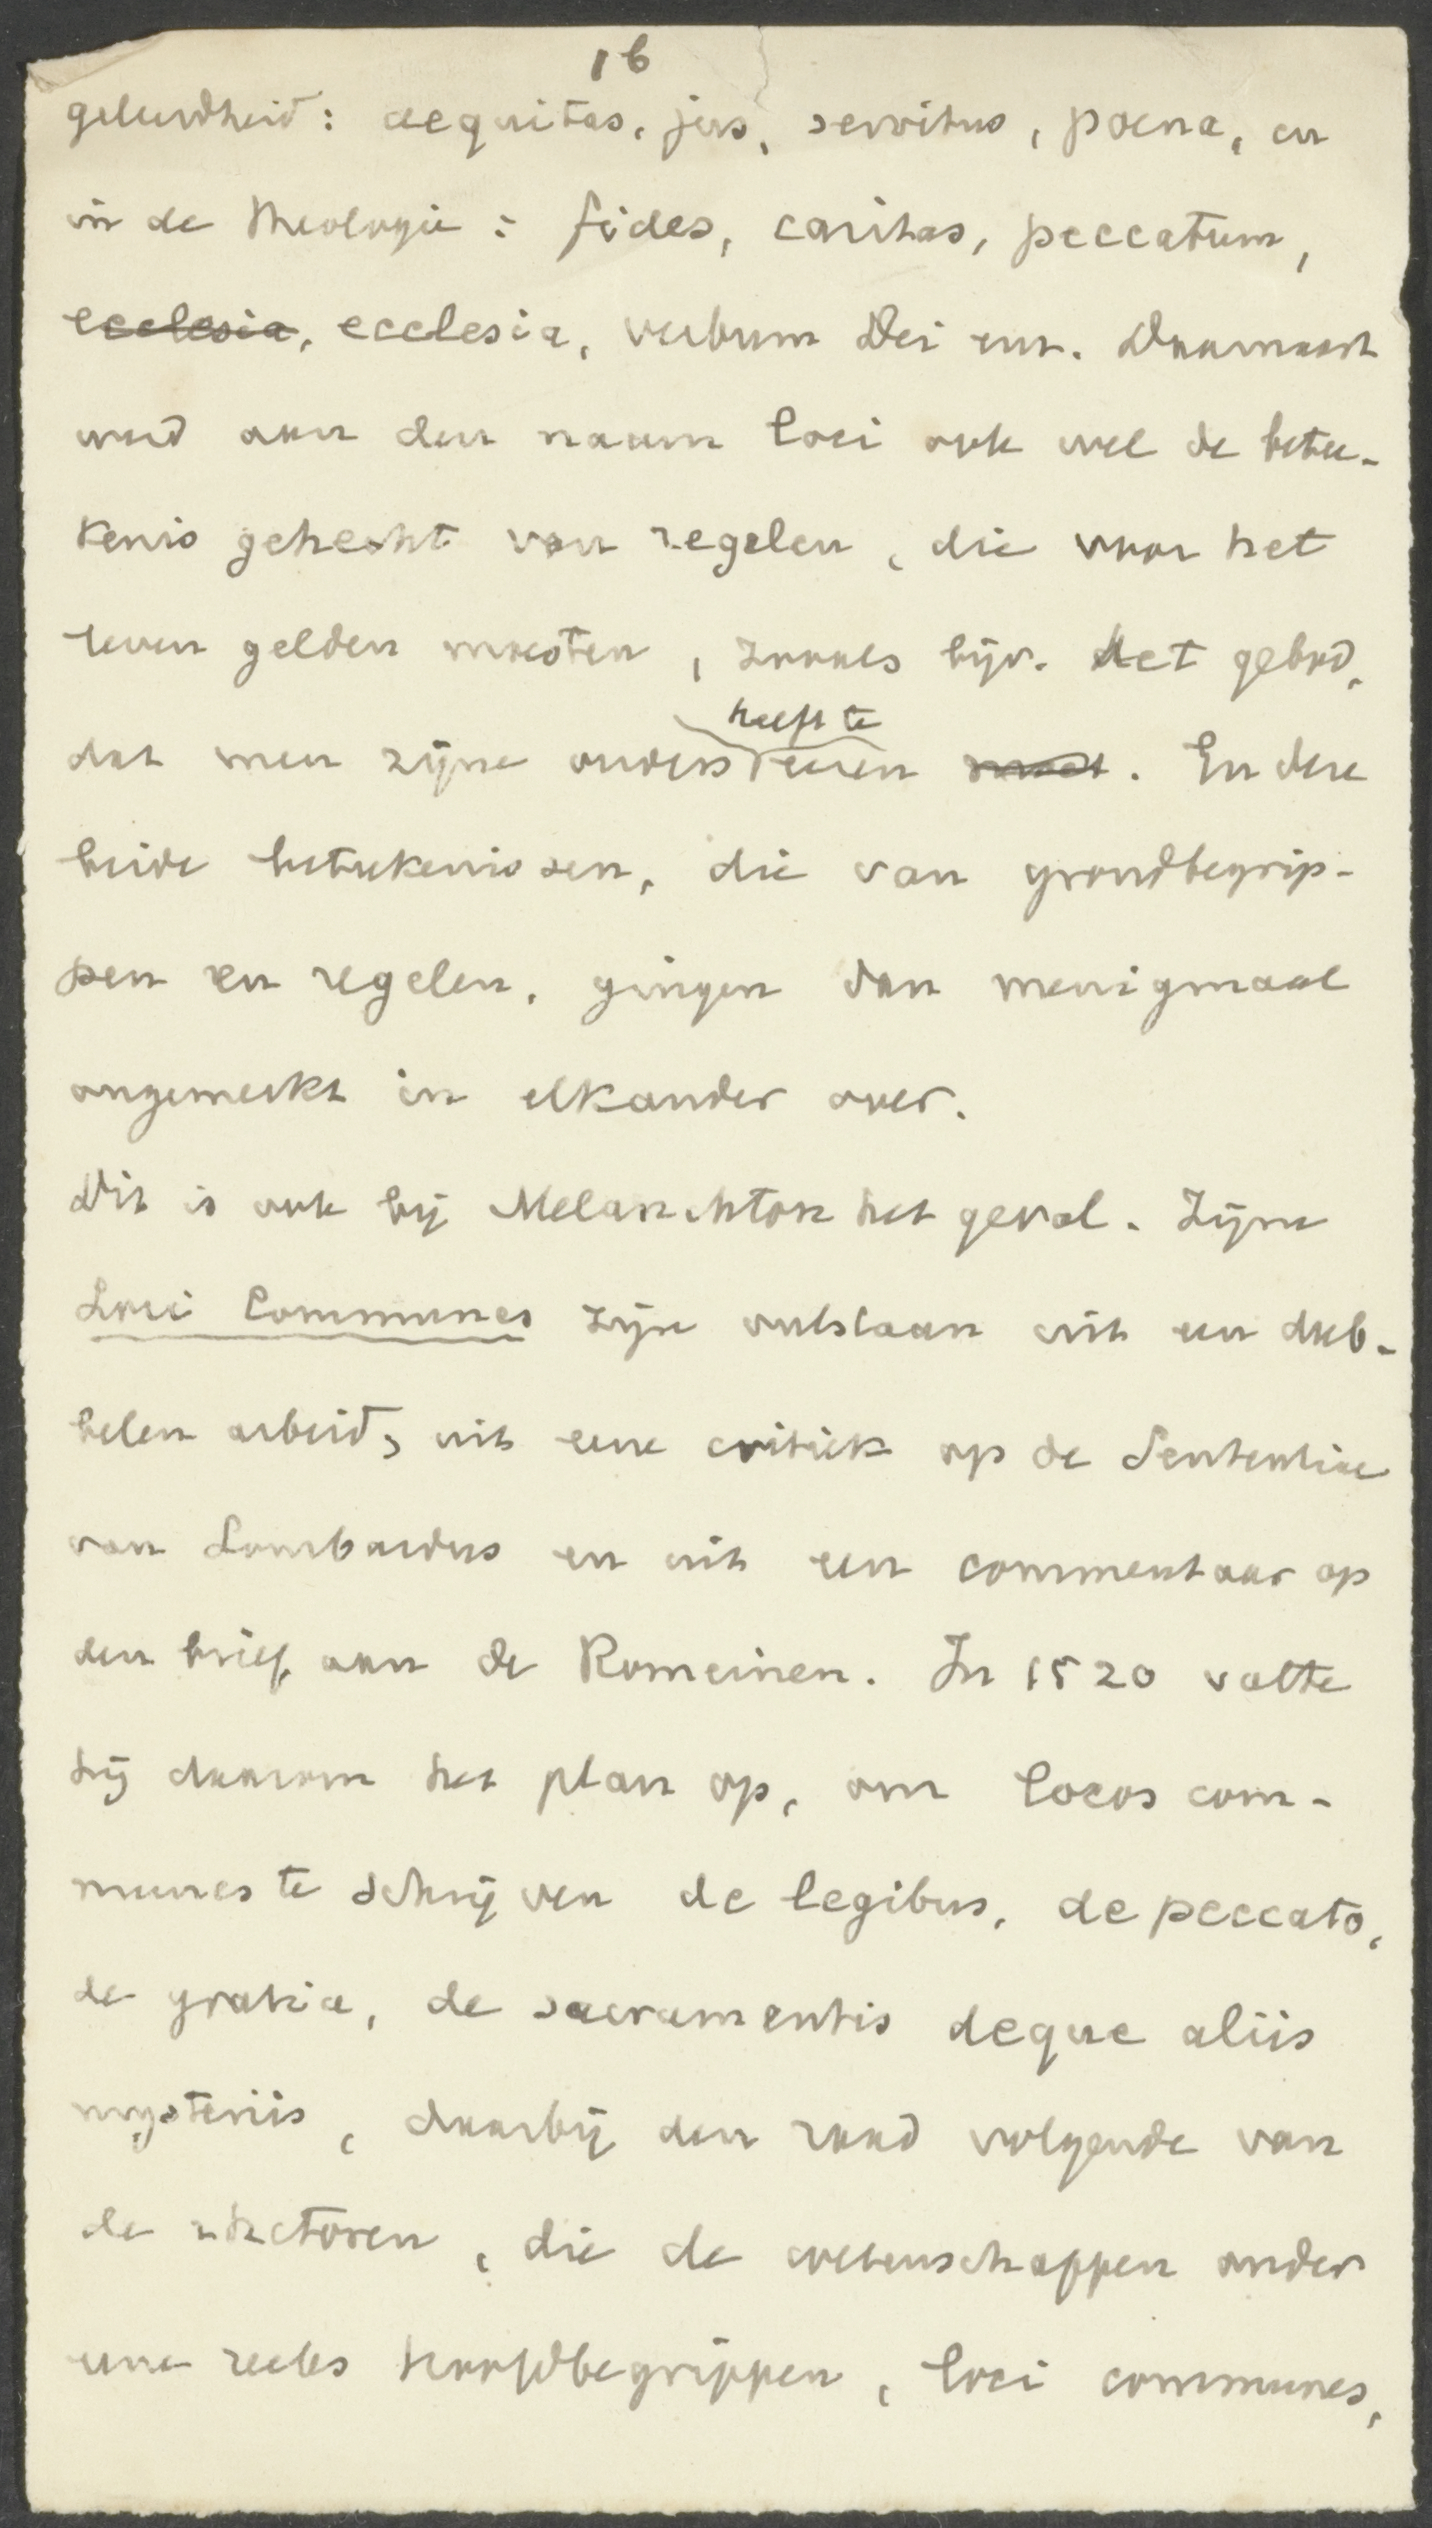 16
geleerdheid: aequitas, jus, servitus, poena, en
in de theologie: fides, caritas, peccatum,
ecclesia, ecclesia, verbum Dei enz. Daarnaast
werd aan den naam loci ook wel de betee-
kenis gehecht van regelen, die voor het
leven gelden moesten, zooals bijv. het gebod,
heeft te
dat men zijne ouders eeren moet. En deze
beide beteekenissen, die van grondbegrip-
pen en regelen, gingen dan menigmaal
ongemerkt in elkander over.
Dit is ook bij Melanchton het geval. Zijne
Loci Communes zijn ontstaan uit een dub-
belen arbeid, uit eene critiek op de Sententiae
van Lombardus en uit een commentaar op
den brief aan de Romeinen. In 1520 vatte
hij daarom het plan op, om locos com-
munes te schrijven de legibus, de peccato,
de gratia, de sacramentis deque aliis
mysteriis, daarbij den raad volgende van
de rhetoren, die de wetenschappen onder
eene reeks hoofdbegrippen, loci communes,